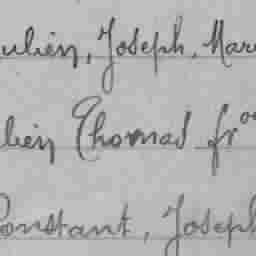 ulien, Joseph, Mar
lien Thomas fr
Constant, Joseph